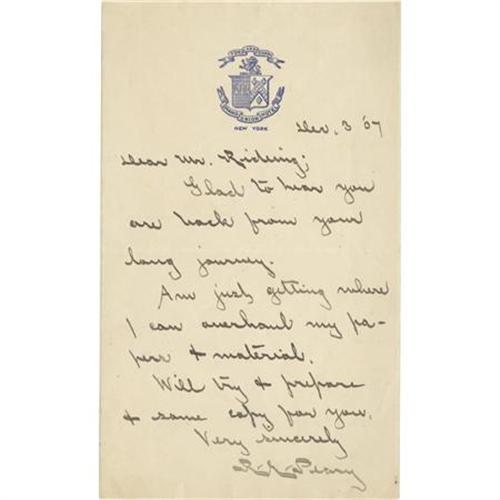 GRAND UNION HOTEL
NEW YORK
Dec, 3 '07
Dear Mr. Rideing;
Glad to hear you
are back from your
long journey.
Am just getting where
I can overhaul my pa-
pers & material.
Will try & prepare
& some copy for you.
Very Sincerely
R. E. Peary